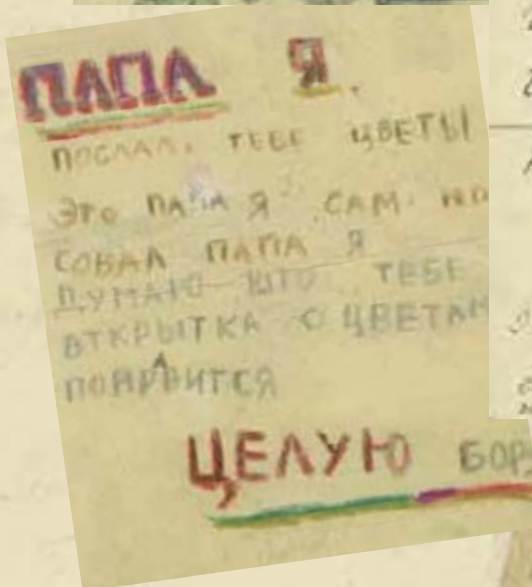 ПАПА Я
ПОСЛАЛ. ТЕБЕ ЦВЕТЫ
ЭТО ПАПА Я САМ НА
СОВАЛ ПАПА Я
ДУМАЮ ШТО ТЕБЕ
ВТКРЫТКА С ЦВЕТАМ
ПОНРАВИТСЯ
ЦЕЛУЮ БОР